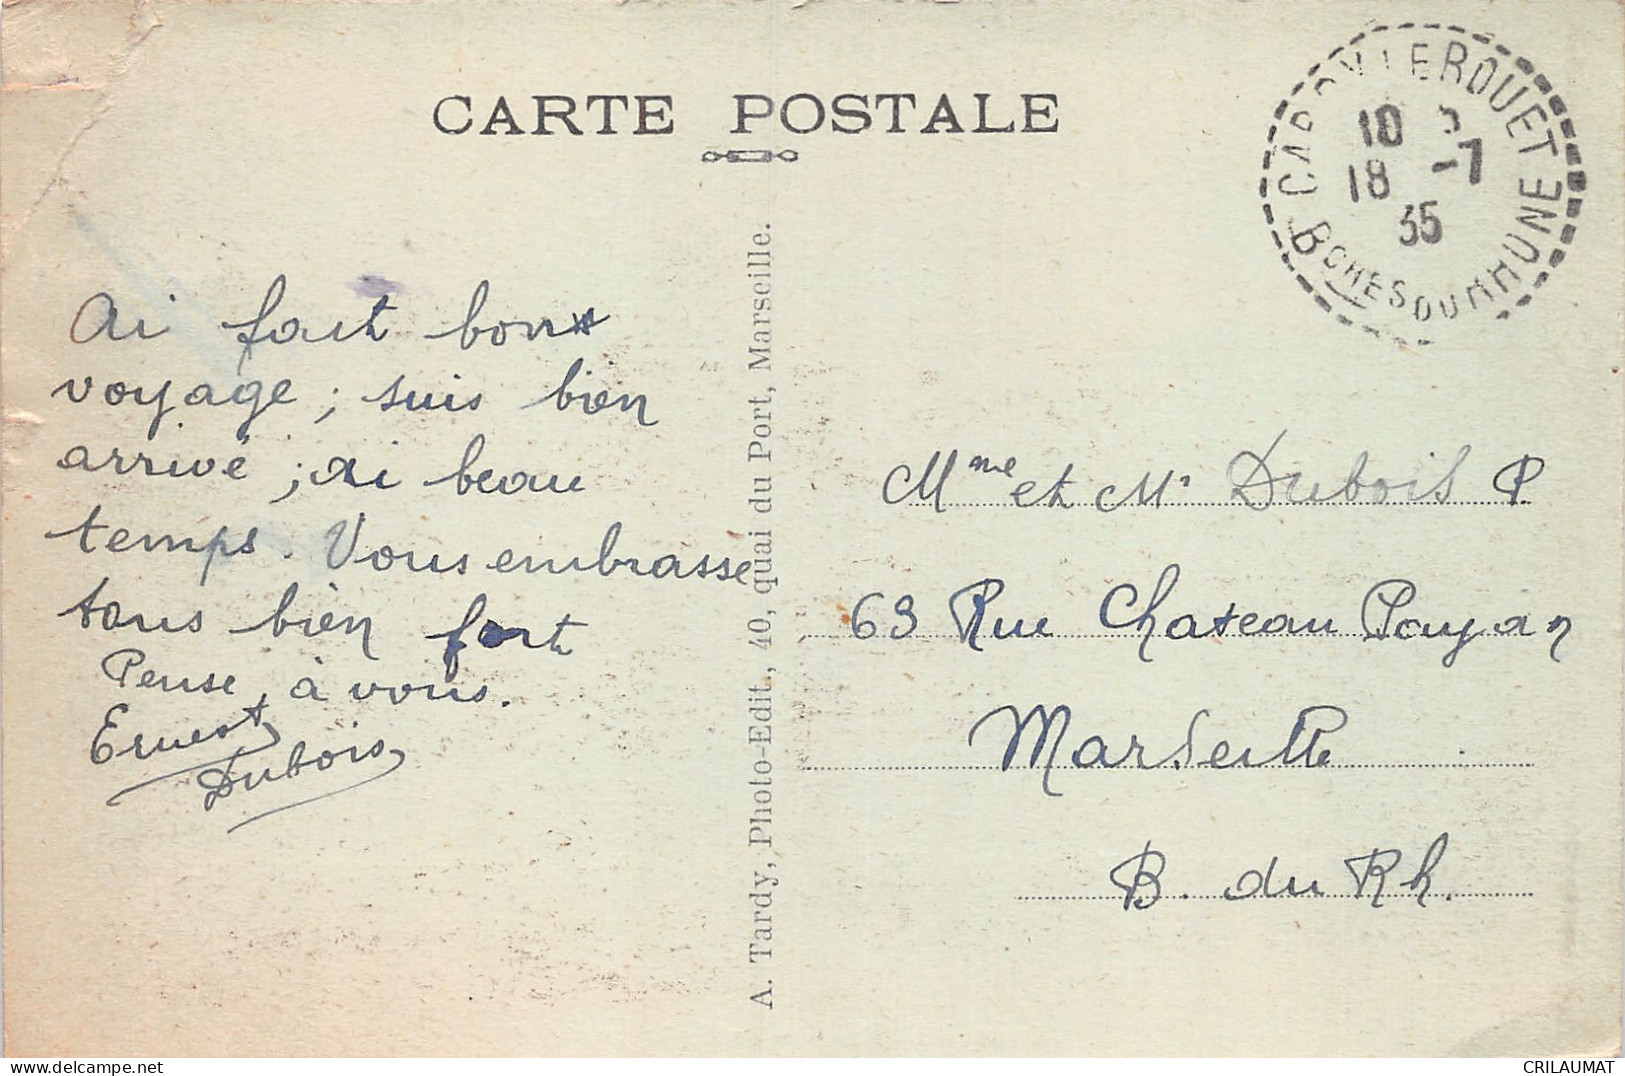 CARTE POSTALE
CARRY LE ROUET
10
18 -7
35
BCHES DU RHONE
Ai fait bon
voyage ; suis bien
arrivé ; ai beau
temps. Vous embrasse
tous bien fort
Pense à vous.
Ernest
Dubois
A. Tardy, Photo-Edit., 40, quai du Port, Marseille.
Mme et Mr Dubois P.
63 Rue Chateau Payan
Marseille
B. du Rh.
CRILAUMAT